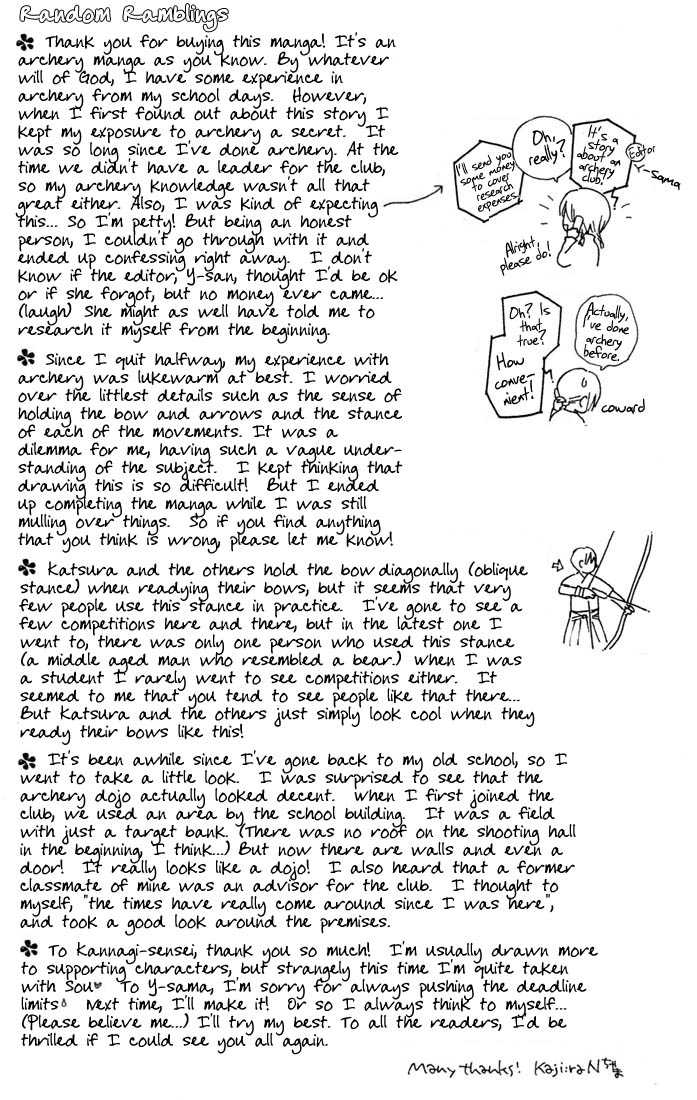 Random Ramblings
Thank you for buying this manga! It's an
archery manga as you know. By whatever
will of God, I have some experience in
archery from my school days. However,
when I first found out about this story I
kept my exposure to archery a secret. It
was so long since I've done archery. At the
time we didn't have a leader for the club,
so my archery knowledge wasn't all that
great either. Also, I was kind of expecting
this... So I'm petty! But being an honest
person, I couldn't go through with it and
ended up confessing right away. I don't
know if the editor, Y-san, thought I'd be ok
or if she forgot, but no money ever came...
(laugh) She might as well have told me to
research it myself from the beginning.
It's a
story
about an
archery
club!
Editor
-Sama
Oh,
really?
I'll send you
some money
to cover
research
expenses.
Alright,
please do!
Actually,
I've done
archery
before.
Oh? Is
that
true?
How
conve-
nient!
coward
Since I quit halfway, my experience with
archery was lukewarm at best. I worried
over the littlest details such as the sense of
holding the bow and arrows and the stance
of each of the movements. It was a
dilemma for me, having such a vague under-
standing of the subject. I kept thinking that
drawing this is so difficult! But I ended
up completing the manga while I was still
mulling over things. So if you find anything
that you think is wrong, please let me know!
Katsura and the others hold the bow diagonally (oblique
stance) when readying their bows, but it seems that very
few people use this stance in practice. I've gone to see a
few competitions here and there, but in the latest one I
went to, there was only one person who used this stance
(a middle aged man who resembled a bear.) When I was
a student I rarely went to see competitions either. It
seemed to me that you tend to see people like that there...
But Katsura and the others just simply look cool when they
ready their bows like this!
It's been awhile since I've gone back to my old school, so I
went to take a little look. I was surprised to see that the
archery dojo actually looked decent. When I first joined the
club, we used an area by the school building. It was a field
with just a target bank. (There was no roof on the shooting hall
in the beginning, I think...) But now there are walls and even a
door! It really looks like a dojo! I also heard that a former
classmate of mine was an advisor for the club. I thought to
myself, "the times have really come around since I was here",
and took a good look around the premises.
To Kannagi-sensei, thank you so much! I'm usually drawn more
to supporting characters, but strangely this time I'm quite taken
with Sou♥ To Y-sama, I'm sorry for always pushing the deadline
limits Next time, I'll make it! Or so I always think to myself...
(Please believe me...) I'll try my best. To all the readers, I'd be
thrilled if I could see you all again.
Many thanks!